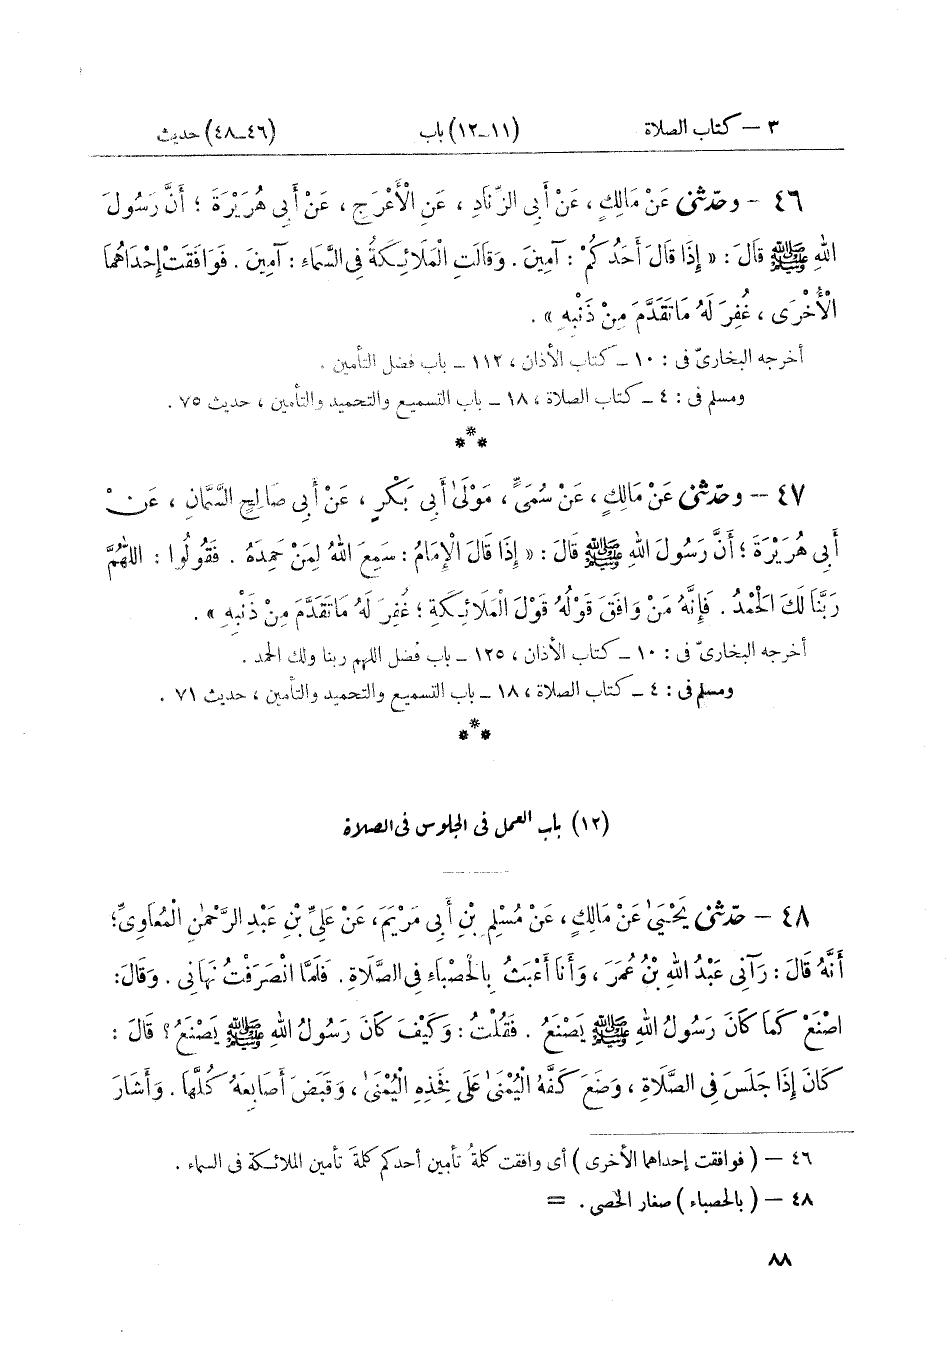 ٣ – كتاب الصلاة (١١–١٢) باب (٤٦–٤٨) حديث
٤٦ – وحدّثنى عَنْ مَالِكٍ، عَنْ أَبِى الزِّنَادِ، عَنِ الْأَعْرَجِ، عَنْ أَبِى هُرَيْرَةَ؛ أَنَّ رَسُولَ
اللهِ ﷺ قَالَ: «إِذَا قَالَ أَحَدُكُمْ: آمِينَ. وَقَالَتِ الْمَلَائِكَةُ فِى السَّمَاءِ: آمِينَ. فَوَافَقَتْ إِحْدَاهُمَا
الْأُخْرَى، غُفِرَ لَهُ مَا تَقَدَّمَ مِنْ ذَنْبِهِ».
أخرجه البخارىّ فى: ١٠ – كتاب الأذان، ١١٢ – باب فضل التأمين.
ومسلم فى: ٤ – كتاب الصلاة، ١٨ – باب التسميع والتحميد والتأمين، حديث ٧٥.
***
٤٧ – وحدّثنى عَنْ مَالِكٍ، عَنْ سُمَىٍّ، مَوْلَى أَبِى بَكْرٍ، عَنْ أَبِى صَالِحٍ السَّمَّانِ، عَنْ
أَبِى هُرَيْرَةَ؛ أَنَّ رَسُولَ اللهِ ﷺ قَالَ: «إِذَا قَالَ الْإِمَامُ: سَمِعَ اللهُ لِمَنْ حَمِدَهُ. فَقُولُوا: اللَّهُمَّ
رَبَّنَا لَكَ الْحَمْدُ. فَإِنَّهُ مَنْ وَافَقَ قَوْلُهُ قَوْلَ الْمَلَائِكَةِ؛ غُفِرَ لَهُ مَا تَقَدَّمَ مِنْ ذَنْبِهِ».
أخرجه البخارىّ فى: ١٠ – كتاب الأذان، ١٢٥ – باب فضل اللهم ربنا ولك الحمد.
ومسلم فى: ٤ – كتاب الصلاة، ١٨ – باب التسميع والتحميد والتأمين، حديث ٧١.
***
(١٢) باب العمل فى الجلوس فى الصلاة
٤٨ – حدّثنى يَحْيَىٰ عَنْ مَالِكٍ، عَنْ مُسْلِمِ بْنِ أَبِى مَرْيَمَ، عَنْ عَلِىِّ بْنِ عَبْدِ الرَّحْمٰنِ الْمُعَاوِىِّ؛
أَنَّهُ قَالَ: رَآنِى عَبْدُ اللهِ بْنُ عُمَرَ، وَأَنَا أَعْبَثُ بِالْحَصْبَاءِ فِى الصَّلَاةِ. فَلَمَّا انْصَرَفْتُ نَهَانِى. وَقَالَ:
اصْنَعْ كَمَا كَانَ رَسُولُ اللهِ ﷺ يَصْنَعُ. فَقُلْتُ: وَكَيْفَ كَانَ رَسُولُ اللهِ ﷺ يَصْنَعُ؟ قَالَ:
كَانَ إِذَا جَلَسَ فِى الصَّلَاةِ، وَضَعَ كَفَّهُ الْيُمْنَىٰ عَلَى فَخِذِهِ الْيُمْنَىٰ، وَقَبَضَ أَصَابِعَهُ كُلَّهَا. وَأَشَارَ
٤٦ – (فوافقت إحداهما الأخرى) أى وافقت كلمةُ تأمين أحدكم كلمةَ تأمين الملائكة فى السماء.
٤٨ – (بالحصباء) صغار الحصى. =
٨٨